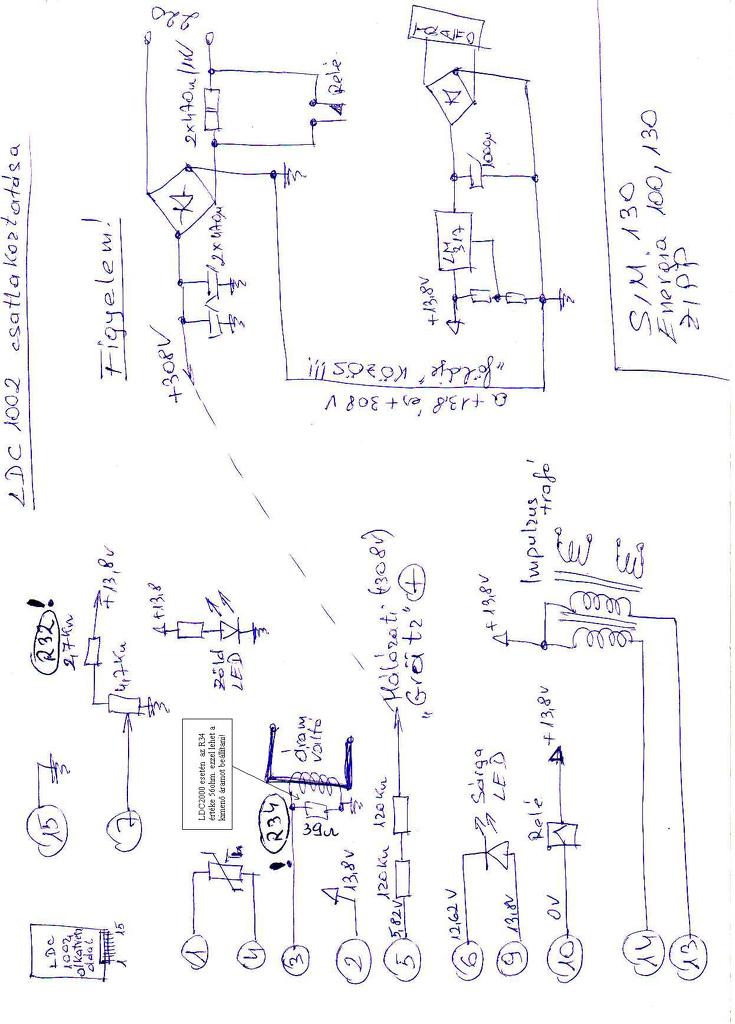 LDC 1002 csatlakoztatása
Figyelem!
220
2x470n/1W
Relé
2x470µ
+308V
TRAFO
1000µ
LM
317
+13,8V
a +13,8 és +308V
"földje" KÖZÖS!!!
S/M. 130
Energia 100, 130
ZIPP
LDC
1002
alkatrész
oldal
1
15
15
7
R32!
2,7Kn
+13,8V
4,7Kn
+13,8
zöld
LED
1
4
LDC2000 esetén az R34
értéke 56ohm, ezzel lehet a
kimenő áramot beállítani!
! R34
39n
áram
váltó
3
2
13,8V
5
5,82V
120Kn
120Kn
Hálózati (+308V)
"Grätz" +
6
12,62V
Sárga
LED
9
13,8V
10
0V
Relé
+13,8V
14
13
+13,8V
Impulzus
trafó